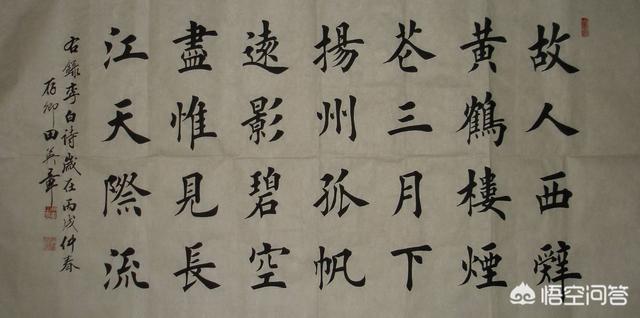 故人西辭
黄鶴樓煙
花三月下
揚州孤帆
遠影碧空
盡惟見長
江天際流
右錄李白诗歲在丙戌仲春
存卿田英章
悟空问答